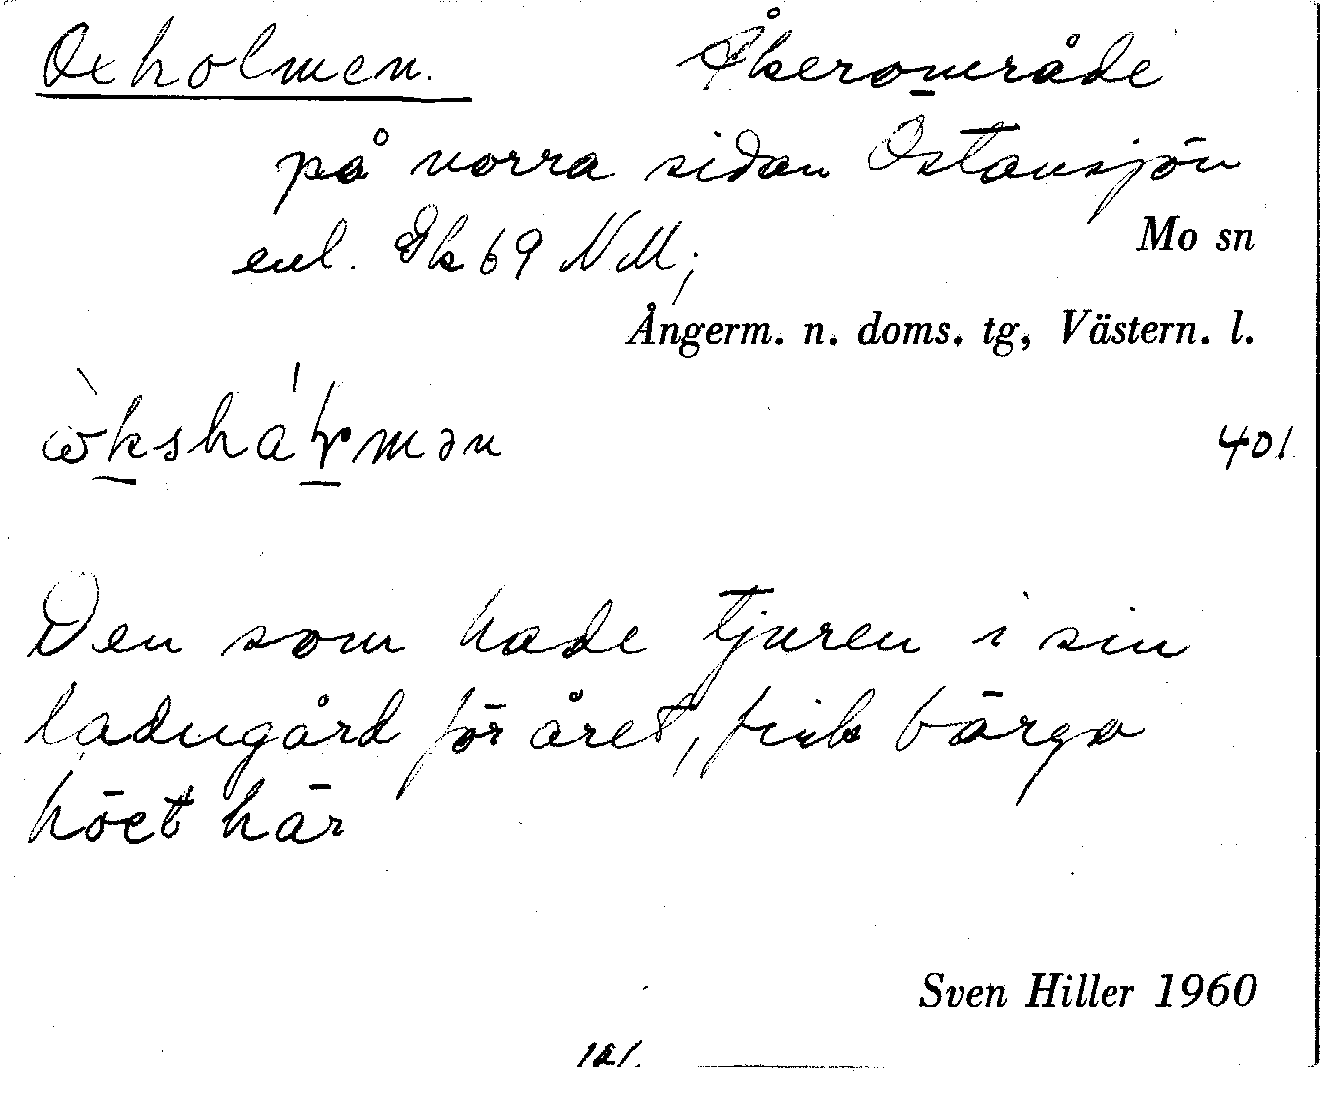 Oxholmen. Åkerområde
på norra sidan Östansjön
enl. Ek 69 NM;
Mo sn
Ångerm. n. doms. tg, Västern. l.
401
Den som hade tjuren i sin
ladugård för året, fick bärga
höet här
Sven Hiller 1960